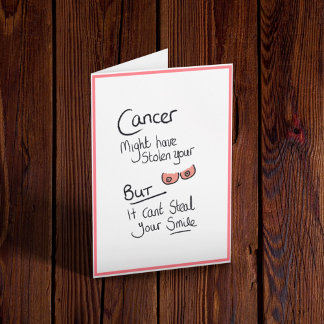 Cancer
Might have
Stolen your
BUT
It Cant Steal
Your Smile